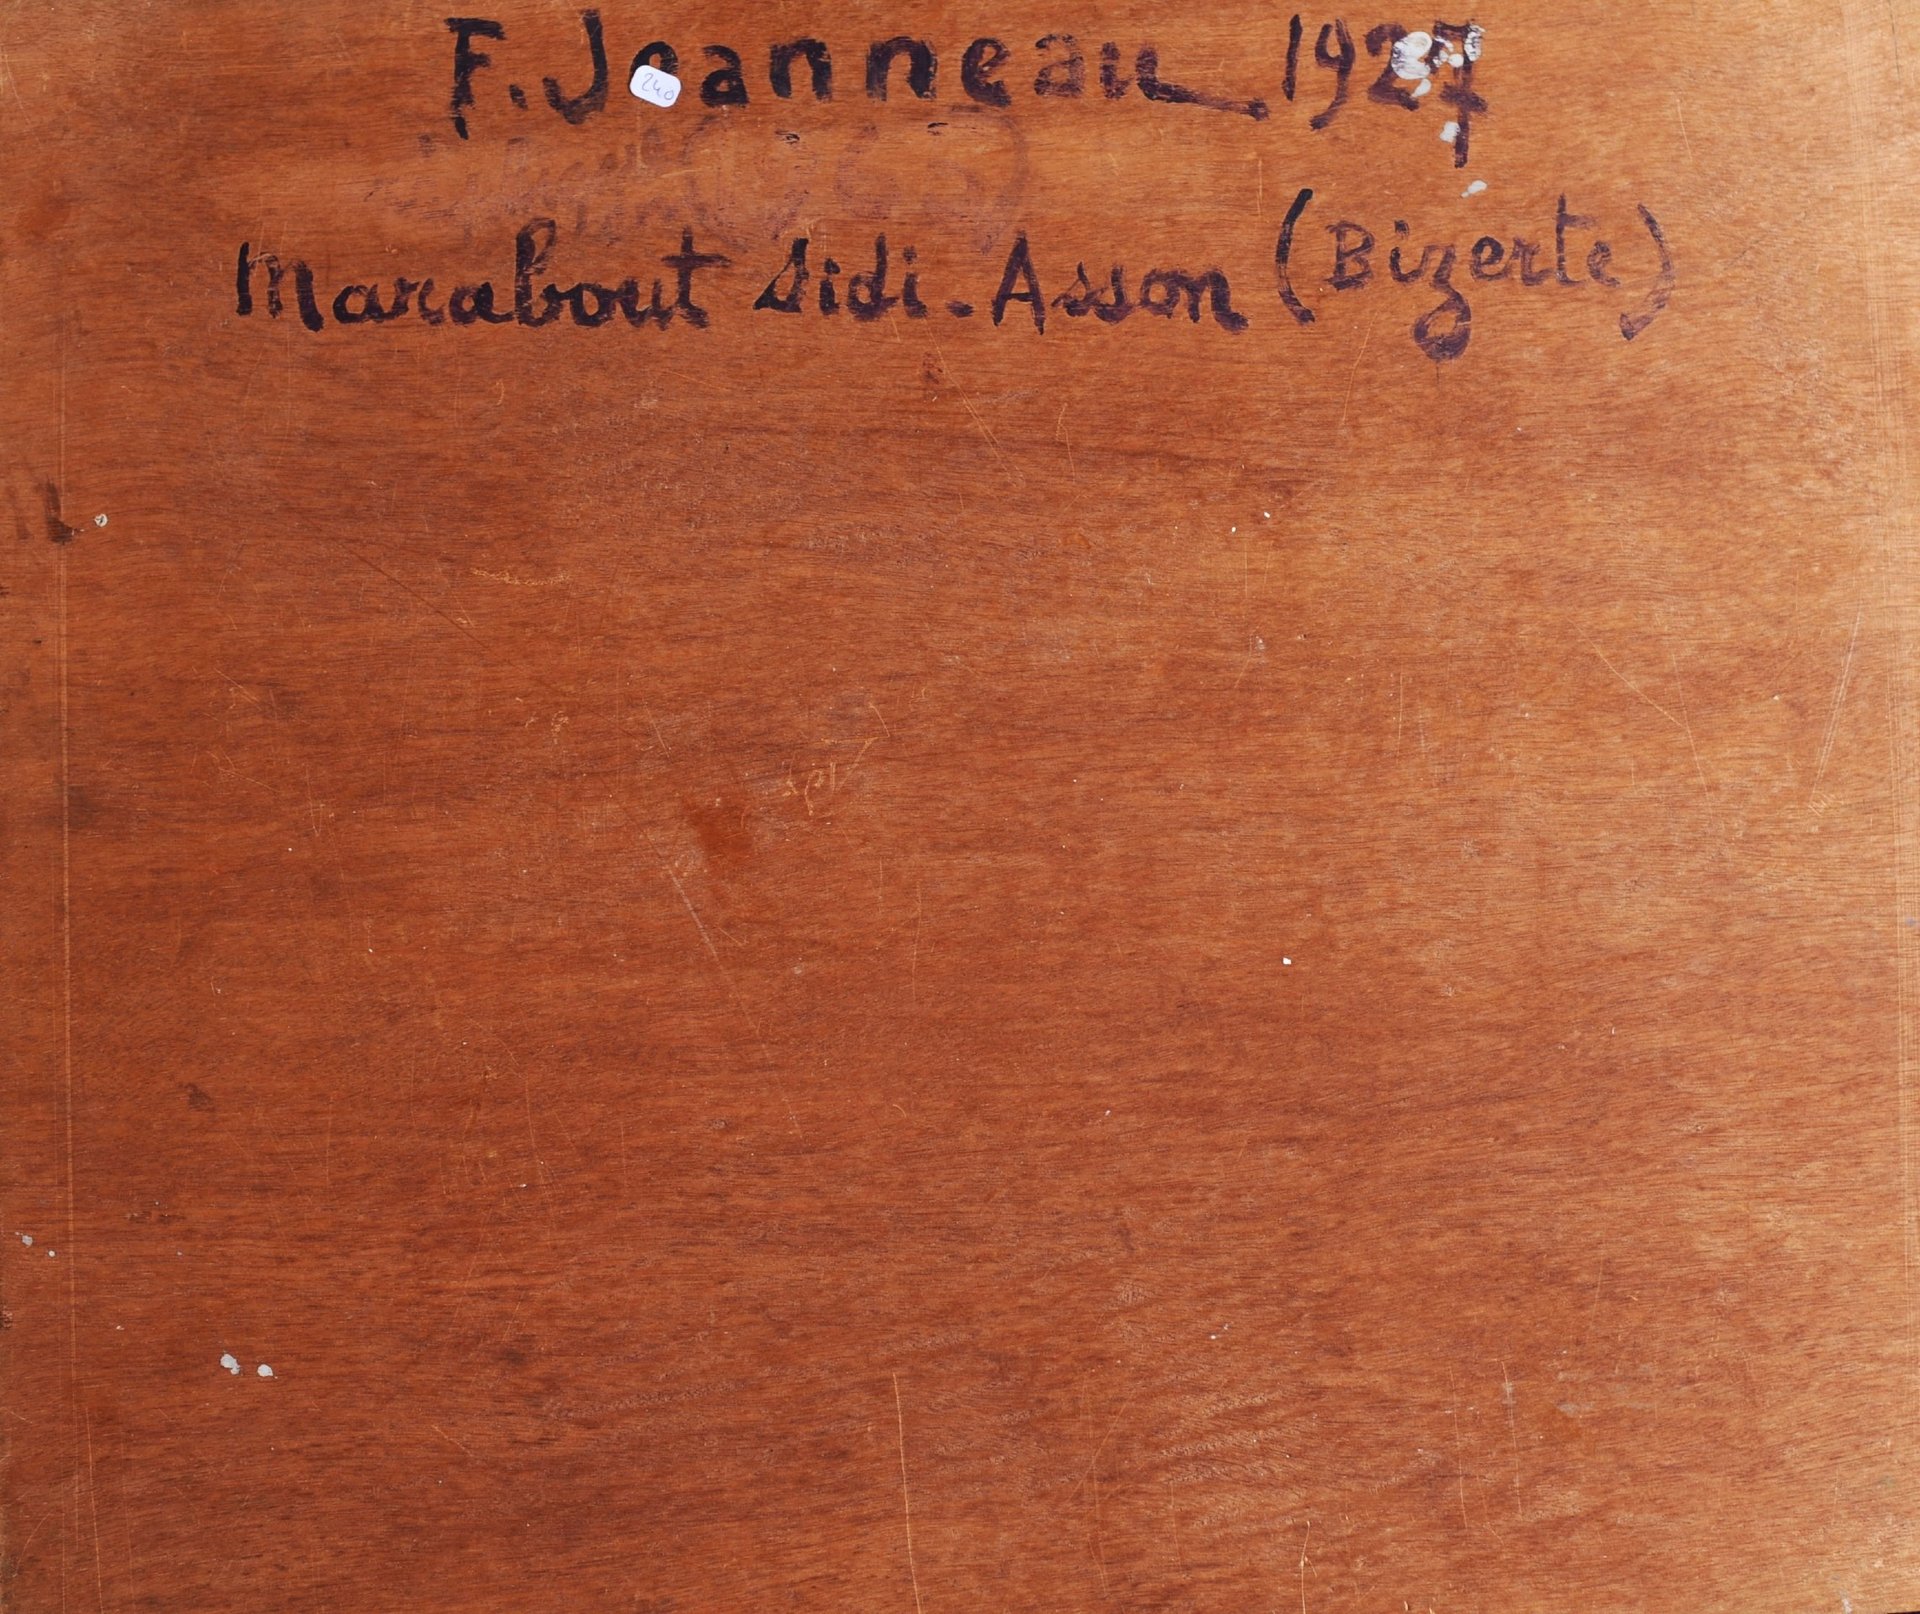 F. Joanneau 1927
240
Marabout Sidi-Asson (Bizerte)